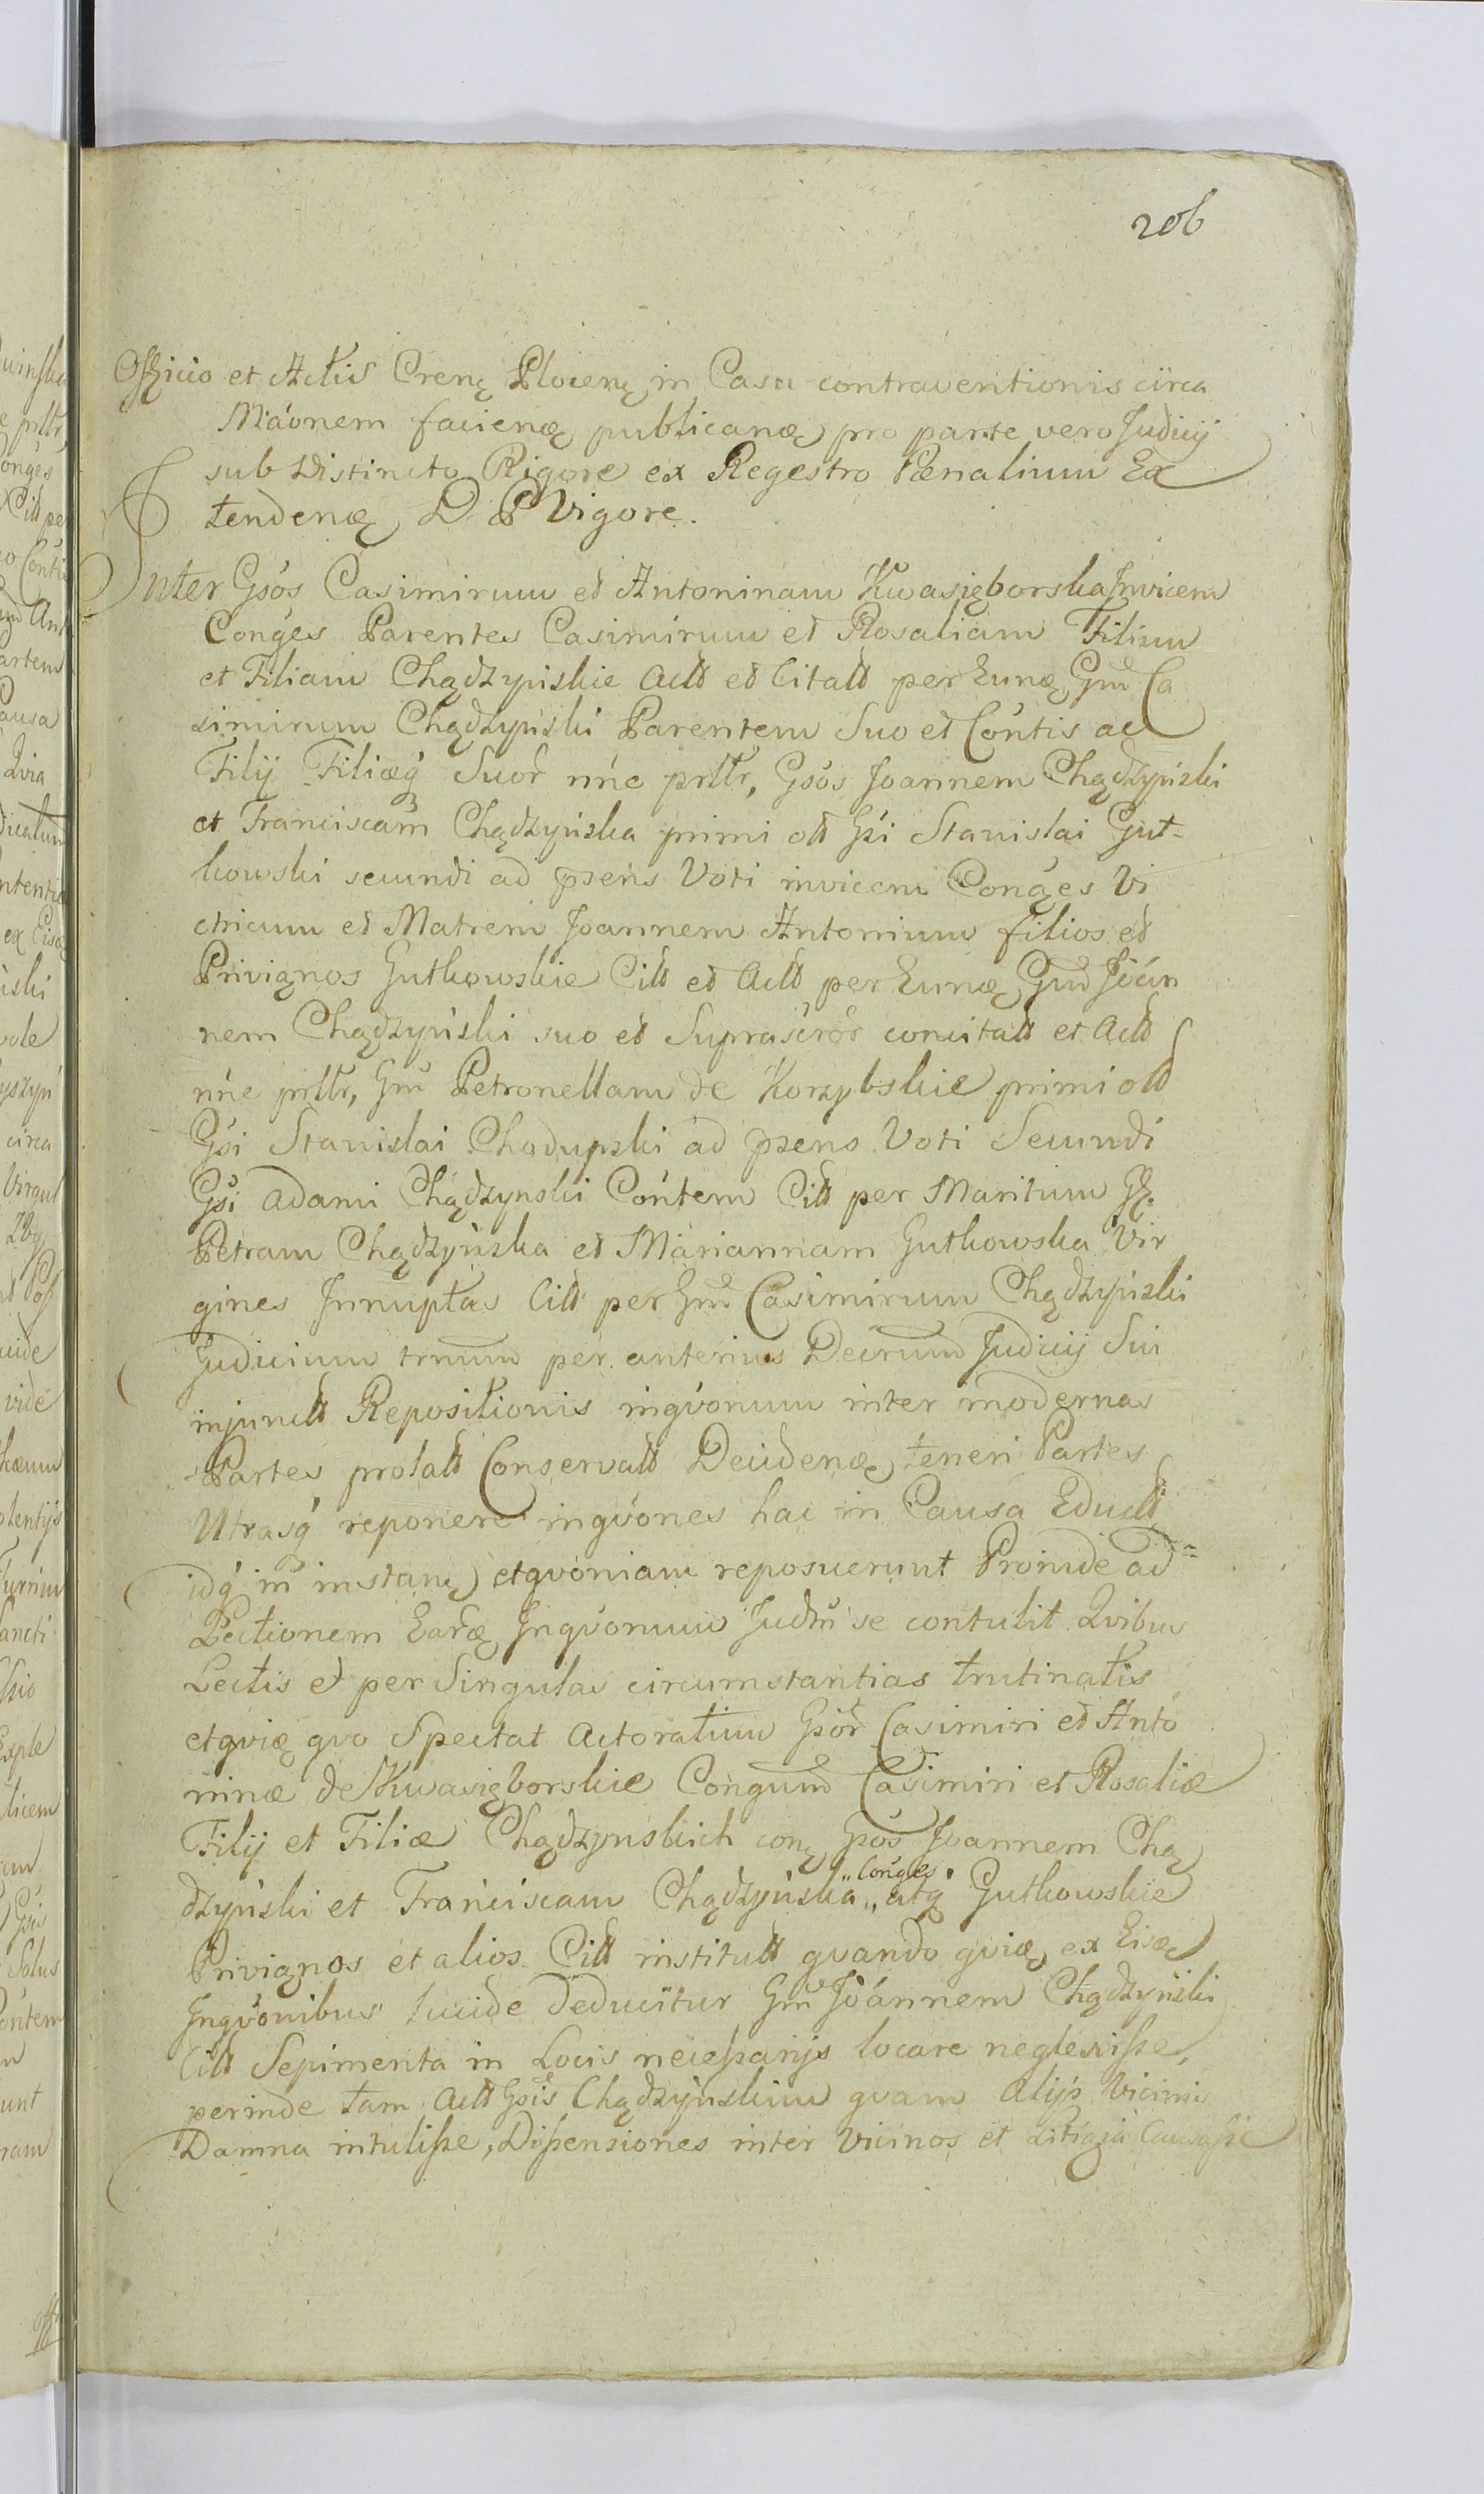 206
Officio et Actis Crenę Plocenę in Casu contraventionis circa
Máonem facienę publicanę pro parte vero Judicij
sub Distincto Rigore ex Regestro Pœnalium Ex
tendenę D P Vigore.
Inter Gsós Casimirum et Antoninam Kwasięborska Invicem
Conges Parentes Casimirum et Rosaliam Filium
et Filiam Chądzyńskie Actt et Citatt per Eunę Gm̃ Ca
simirum Chądzyński Parentem Suo et Cóntis ac
Filij Filiæq́ Suor̃ nńe prttr, Gsós Joannem Chądzyński
et Franciscam Chądzyńska primi ott Gsi Stanislai Gut-
kowski secundi ad p̃sens Voti invicem Conges Vi
tricum et Matrem Joannem Antonium filios et
Privignos Gutkowskie Citt et Actt per Eunę Gm̃ Joán
nem Chądzyński suo et Suprascror̃ concitatt et Actt
nńe prttr, Gm̃ Petronellam de Korzybskie primi ott
Gsi Stanislai Chodupski ad p̃sens Voti Secundi
Gsi Adami Chądzynski Cóntem Citt per Maritum G.
Petram Chądzyńska et Mariannam Gutkowska Vir
gines Innuptas Citt per Gm̃ Casimirum Chądzyński
Judicium trnum per anterius Decrum Judicij Sui
injunctt Repositionis inqvónum inter modernas
Partes prolatt Conservatt Decidenę teneri Partes
Utrasq́ reponere inqvónes hac in Causa Eductt
idq́ in instanę etqvoniam reposuerunt Proinde ad
Lectionem Earę Inqvónum Judm̃ se contulit Qvibus
Lectis et per Singulas circumstantias trutinatis
etqvię qvo Spectat Actoratum Gsór̃ Casimiri et Anto
ninæ de Kwasięborskie Congum Casimiri et Rosaliæ
Filij et Filiæ Chądzynskich conę Gsós Joannem Chą
dzyński et Franciscam Chądzyńska „Conges„ atq́ Gutkowskie
Privignos et alios Citt institutt qvando qvię ex Eisę
Inqvónibus lucide deducitur Gm̃ Joánnem Chądzyński
Citt Sepimenta in Locis necessarijs locare neglexisse,
perinde tam Actt Gsis Chądzyńskim qvam Alijs Vicinis
Damna intulisse, Dissensiones inter Vicinos et Litigia Causasse